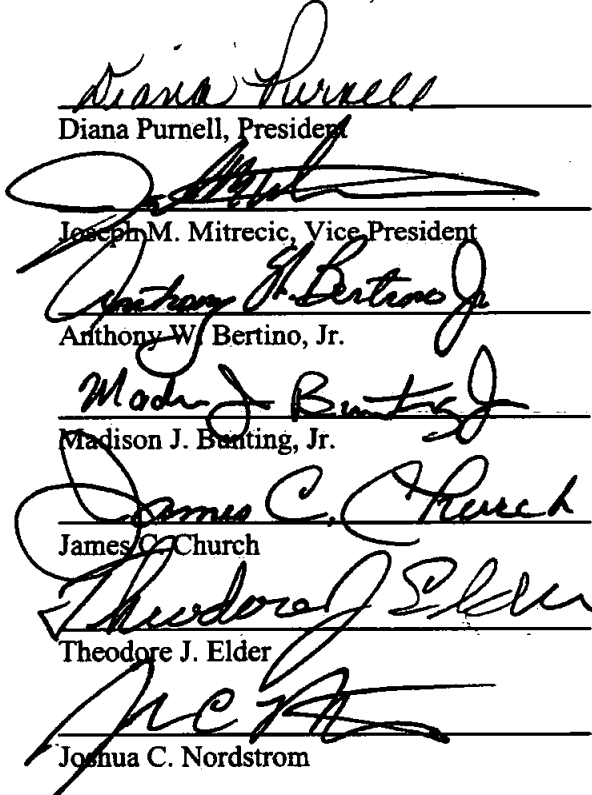 Diana Purnell
Diana Purnell, President
Joseph M. Mitrecic, Vice President
Anthony W. Bertino Jr
Anthony W. Bertino, Jr.
Madison J. Bunting, Jr.
James C. Church
James C. Church
Theodore J Elder
Theodore J. Elder
Joshua C. Nordstrom